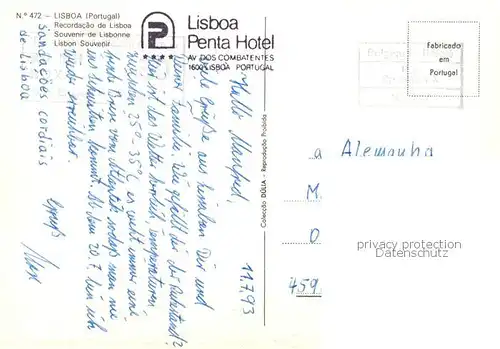 N.º 472 - LISBOA (Portugal)
Recordação de Lisboa
Souvenir de Lisbonne
Lisbon Souvenir
P
★★★★
Lisboa
Penta Hotel
AV. DOS COMBATENTES
1600 LISBOA PORTUGAL
Fabricado
em
Portugal
Colecção DÚLIA - Reprodução Proibida
11.7.93
Hallo Manfred,
viele Grüße aus Lissabon Dir und
Deiner Familie. Wie gefällt Dir der Ruhestand?
Hier ist das Wetter herrlich, Temperaturen
zwischen 25-35°C, es weht immer eine
Brise vom Atlantik, sodaß man nie
ins Schwitzen kommt. Ab dem 20.7. bin ich
wieder erreichbar.
Saudações cordiais
de Lisboa
Max
a Alemanha
M.
O
459
privacy protection
Datenschutz